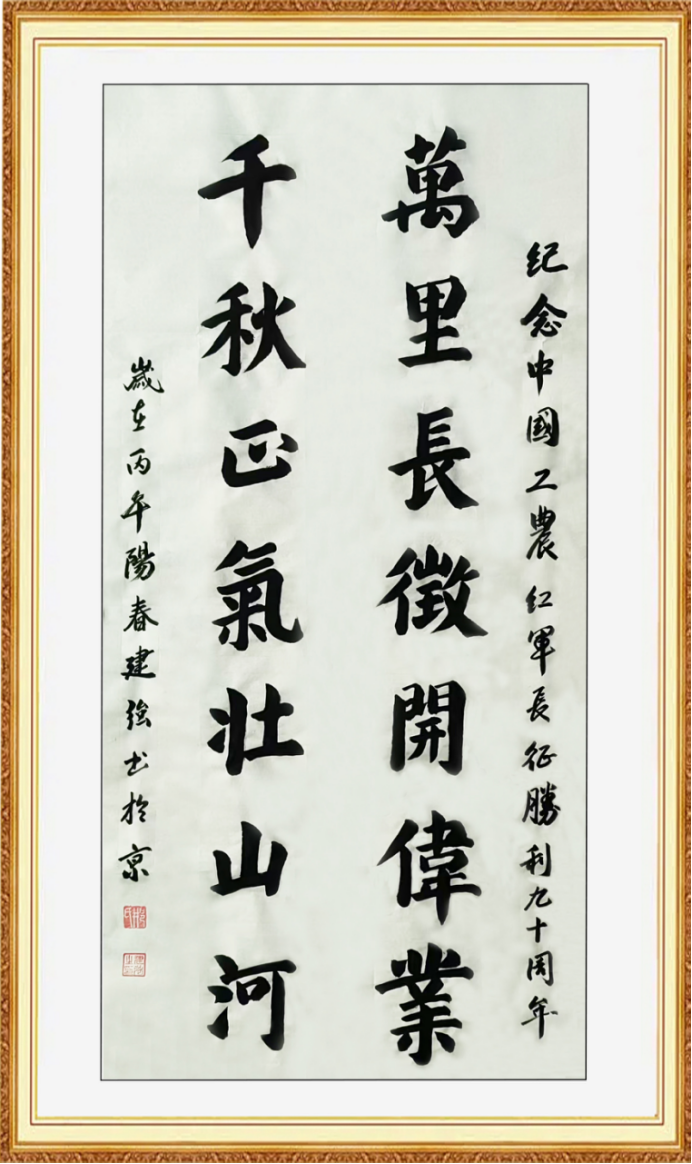 纪念中國工農红軍長征勝利九十周年
萬里長徵開偉業
千秋正氣壯山河
歲在丙午陽春建强书於京